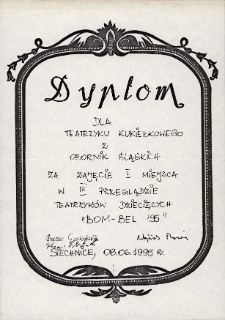 Dyplom
DLA
TEATRZYKU KUKIEŁKOWEGO
Z
OBORNIK ŚLĄSKICH
ZA ZAJĘCIE I MIEJSCA
W III PRZEGLĄDZIE
TEATRZYKÓW DZIECIĘCYCH
"BOM-BEL '95"
SIECHNICE, 08.06.1995 r.